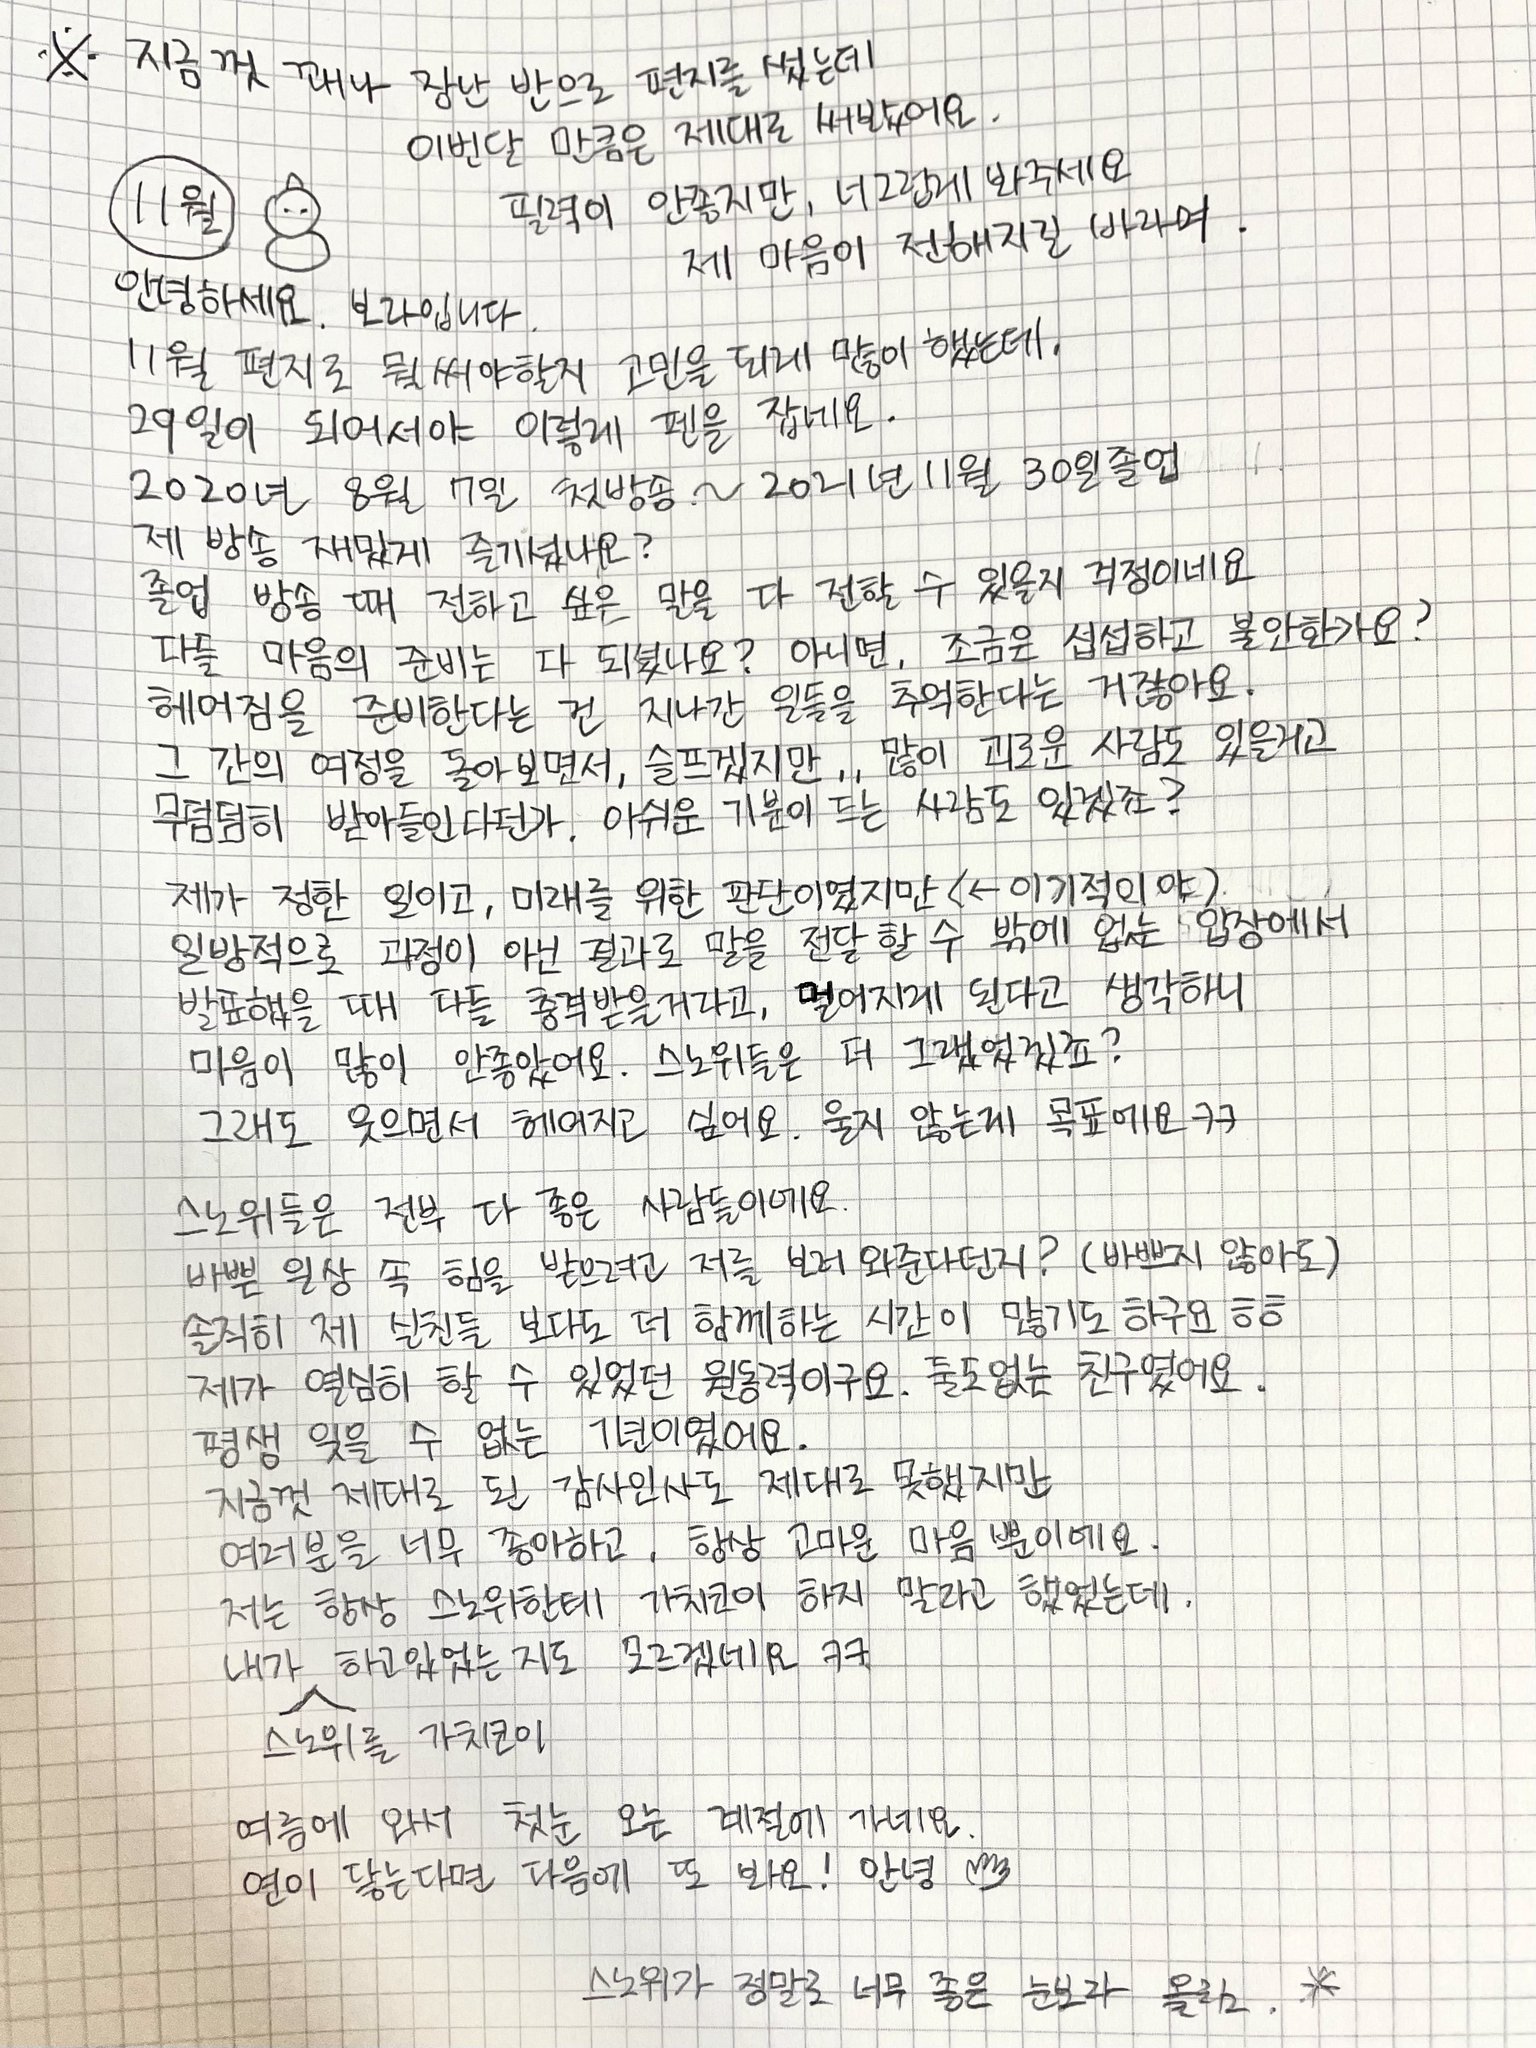 ※ 지금껏 꽤나 장난 반으로 편지를 썼는데
이번달 만큼은 제대로 써봤어요.
필력이 안좋지만, 너그럽게 봐주세요
제 마음이 전해지길 바라며.
11월
안녕하세요. 보라입니다.
11월 편지로 뭘써야할지 고민을 되레 많이 했는데,
29일이 되어서야 이렇게 펜을 잡네요.
2020년 8월 7일 첫방송 ~ 2021년 11월 30일 졸업
제 방송 재밌게 즐기셨나요?
졸업 방송 때 전하고 싶은 말을 다 전할 수 있을지 걱정이네요
다들 마음의 준비는 다 되셨나요? 아니면, 조금은 섭섭하고 불안한가요?
헤어짐을 준비한다는 건 지나간 일들을 추억한다는 거잖아요.
그 간의 여정을 돌아보면서, 슬프겠지만,, 많이 괴로운 사람도 있을거고
무덤덤히 받아들인다던가, 아쉬운 기분이 드는 사람도 있겠죠?
제가 정한 일이고, 미래를 위한 판단이였지만 (← 이기적이야)
일방적으로 과정이 아닌 결과로 말을 전달 할 수 밖에 없는 입장에서
발표했을 때 다들 충격받을거라고, 멀어지게 된다고 생각하니
마음이 많이 안좋았어요. 스노위들은 더 그랬었겠죠?
그래도 웃으면서 헤어지고 싶어요. 울지 않는게 목표에요 ㅋㅋ
스노위들은 전부 다 좋은 사람들이에요.
바쁜 일상 속 힘을 받으려고 저를 보러 와준다던지? (바쁘지 않아도)
솔직히 제 실친들 보다도 더 함께하는 시간이 많기도 하구요 ㅎㅎ
제가 열심히 할 수 있었던 원동력이구요. 둘도없는 친구였어요.
평생 잊을 수 없는 1년이였어요.
지금껏 제대로 된 감사인사도 제대로 못했지만
여러분을 너무 좋아하고, 항상 고마운 마음 뿐이에요.
저는 항상 스노위한테 가치코이 하지 말라고 했었는데,
내가 하고있었는지도 모르겠네요 ㅋㅋ
스노위를 가치코이
여름에 와서 첫눈 오는 계절에 가네요.
연이 닿는다면 다음에 또 봐요! 안녕
스노위가 정말로 너무 좋은 눈보라 올림.